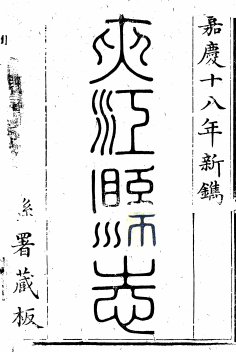 嘉慶十八年新鐫
夾江縣志
縣署藏板